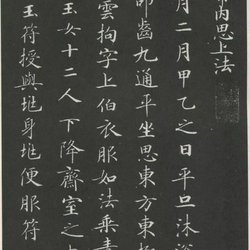 內思上法
月二月甲乙之日平旦沐浴
叩齒九通平坐思東方東極
雲拘字上伯衣服如法乘青
玉女十二人下降齋室之
玉符授與垗身垗便服符